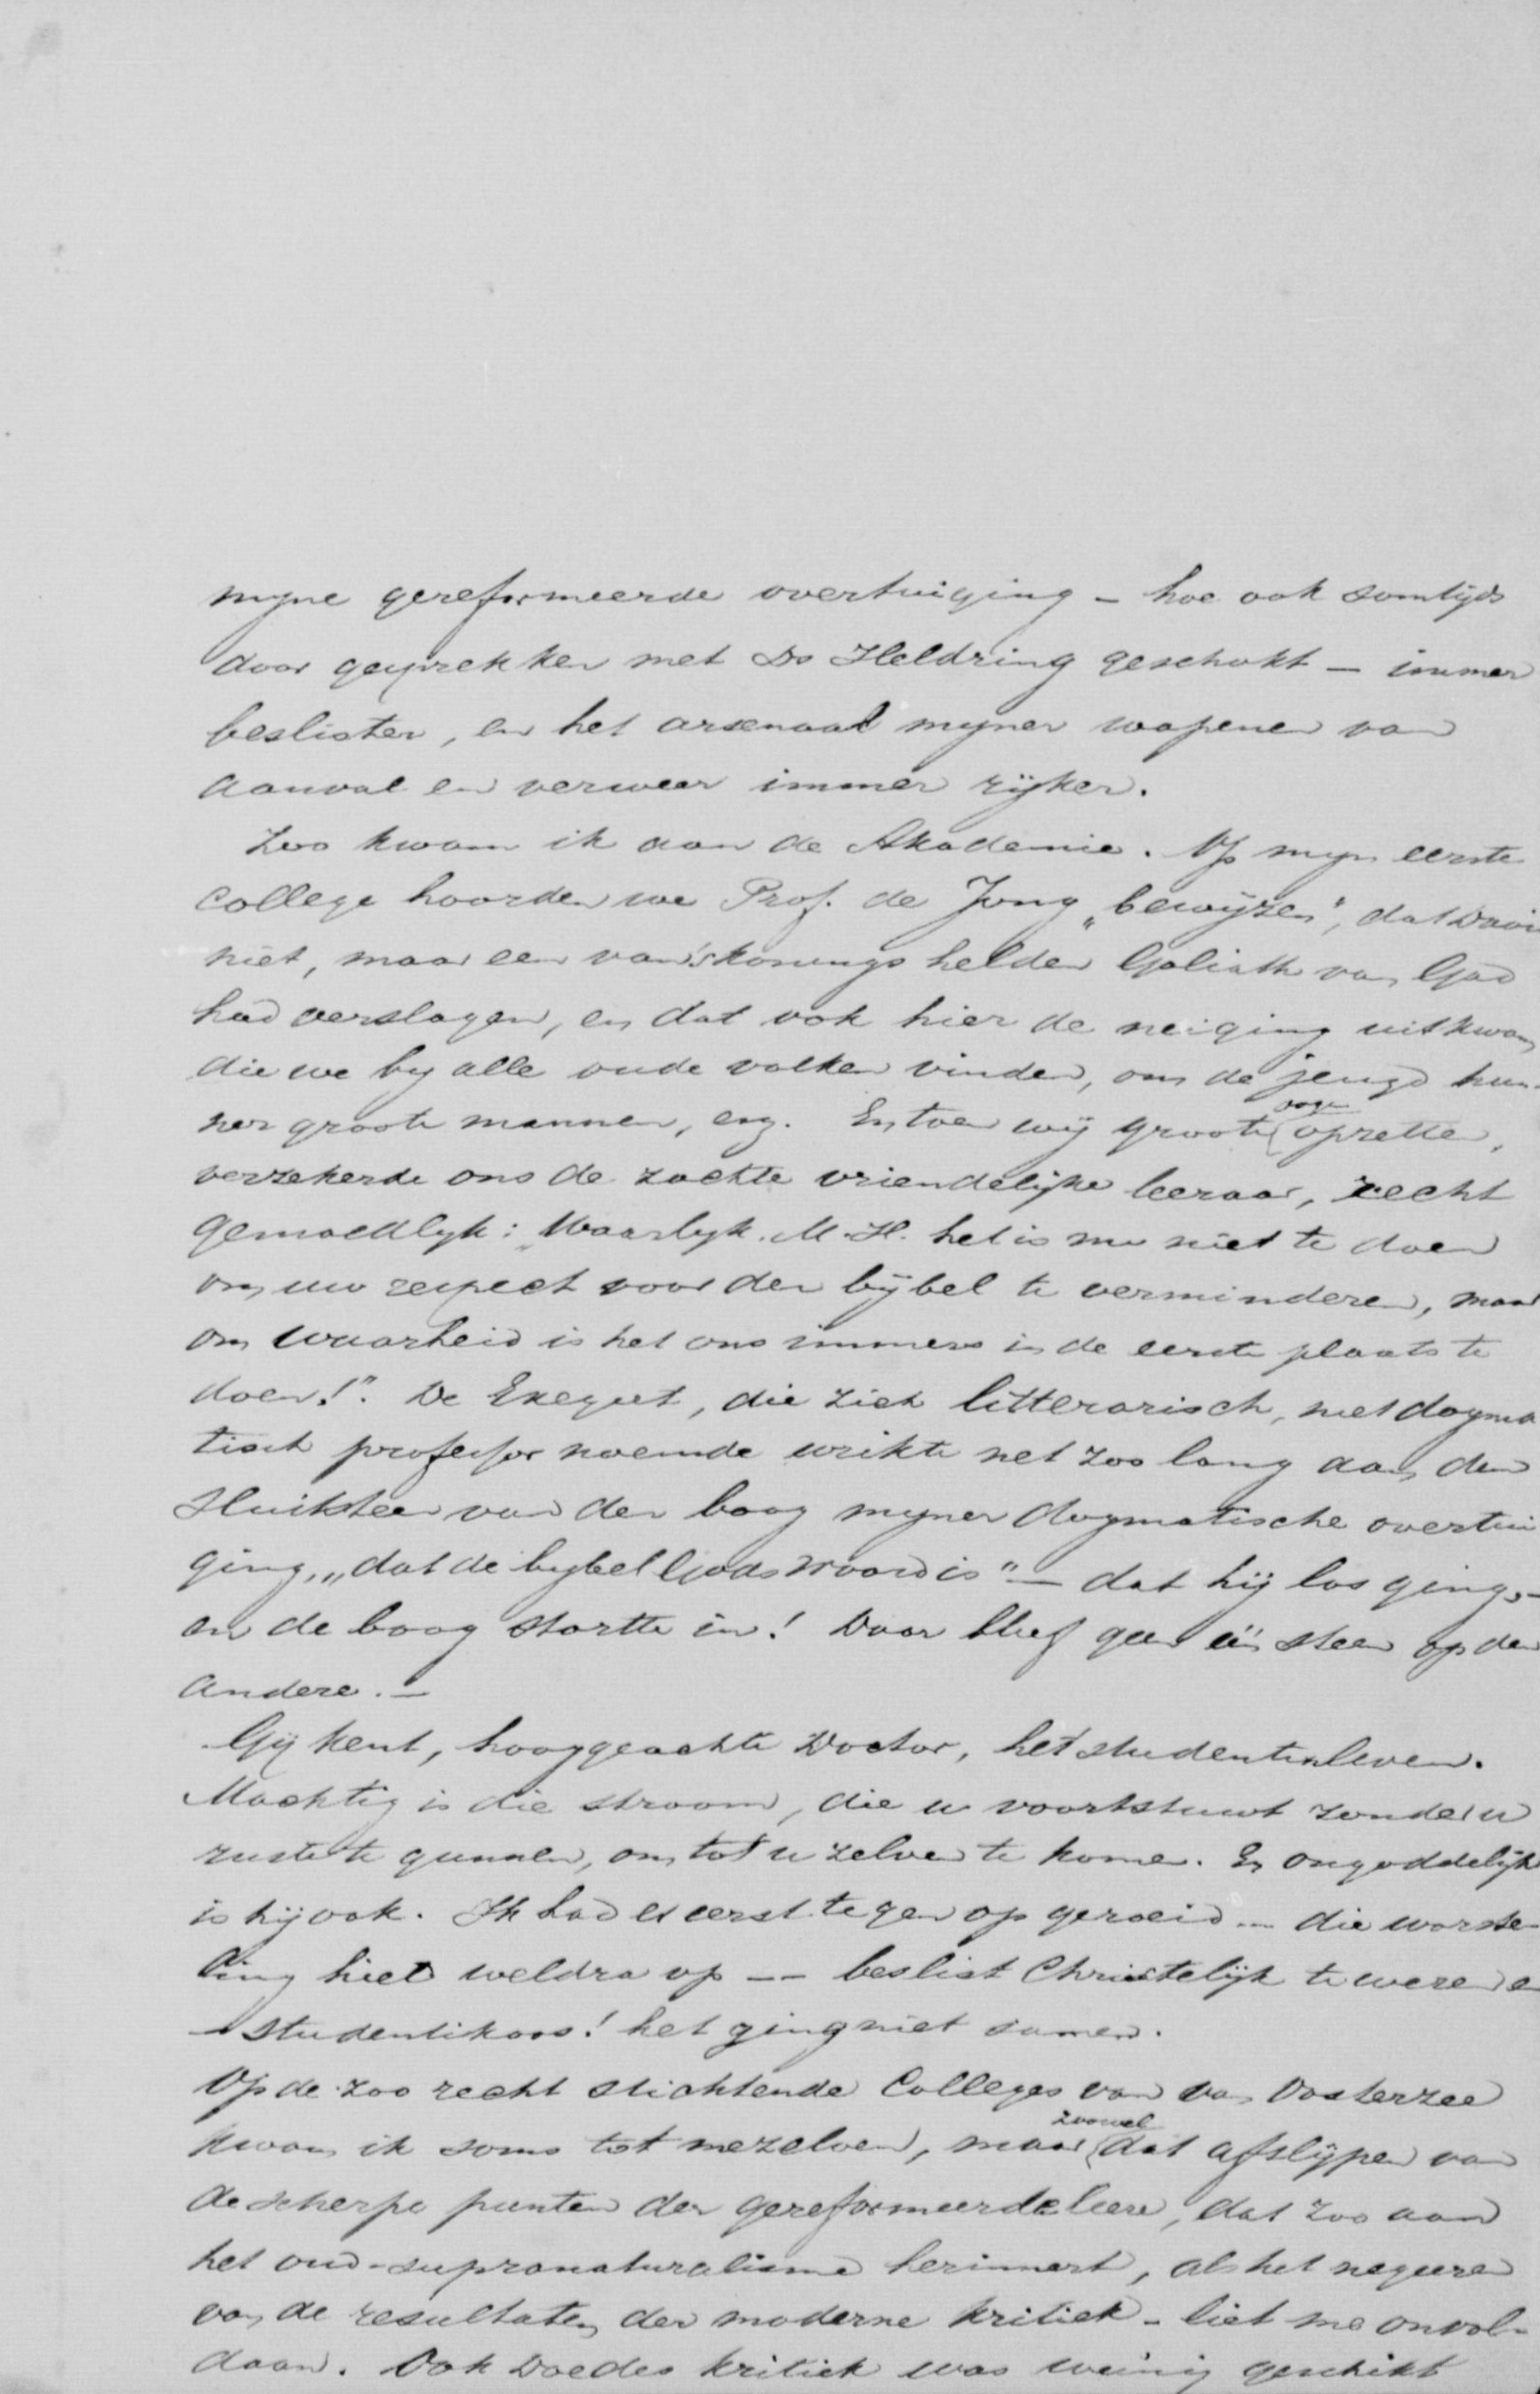 myne gereformeerde overtuiging – hoe ook somtijds
door gesprekken met Ds Heldring geschokt – immer
beslister, en het arsenaal myner wapenen van
aanval en verweer immer rijker.
Zoo kwam ik aan de Akademie. Op myn eerste
college hoorden we Prof. de Jong „bewijzen", dat Davi
niet, maar een van 's konings helden Goliath van Gad
had verslagen, en dat ook hier de neiging uitkwam
die we by alle oude volken vinden, om de jeugd hun-
ner groote mannen, enz. En toen wij groote oogen opzetten,
verzekerde ons de zachte vriendelijke leeraar, recht
gemoedlyk: „Waarlyk. M.H. het is me niet te doen
om uw respect voor den bijbel te verminderen, maar
om waarheid is het ons immers in de eerste plaats te
doen!". De Exegeet, die zich litterarisch, niet dogma
tisch professor noemde wrikte net zoo lang aan den
sluitsteen van den boog myner dogmatische overtui
ging, „dat de bybel Gods woord is" – dat hij los ging, –
en de boog stortte in! Daar bleef geen één steen op den
andere. –
Gij kent, hooggeachte Doctor, het studentenleven.
Machtig is die stroom, die u voortstuwt zonder u
ruste te gunnen, om tot u zelven te komen. En ongoddelijk
is hij ook. Ik had er eerst tegen op geroeid – die worste-
ling hield weldra op – – beslist Christelijk te wezen en
– studentikoos! het ging niet samen.
Op de zoo recht stichtende Colleges van van Oosterzee
kwam ik soms tot mezelven, maar zoowel dat afslijpen van
de scherpe punten der gereformeerde leere, dat zoo aan
het oud-supranaturalisme herinnert, als het negeeren
van de resultaten der moderne kritiek – liet me onvol-
daan. Ook Doedes kritiek was weinig geschikt